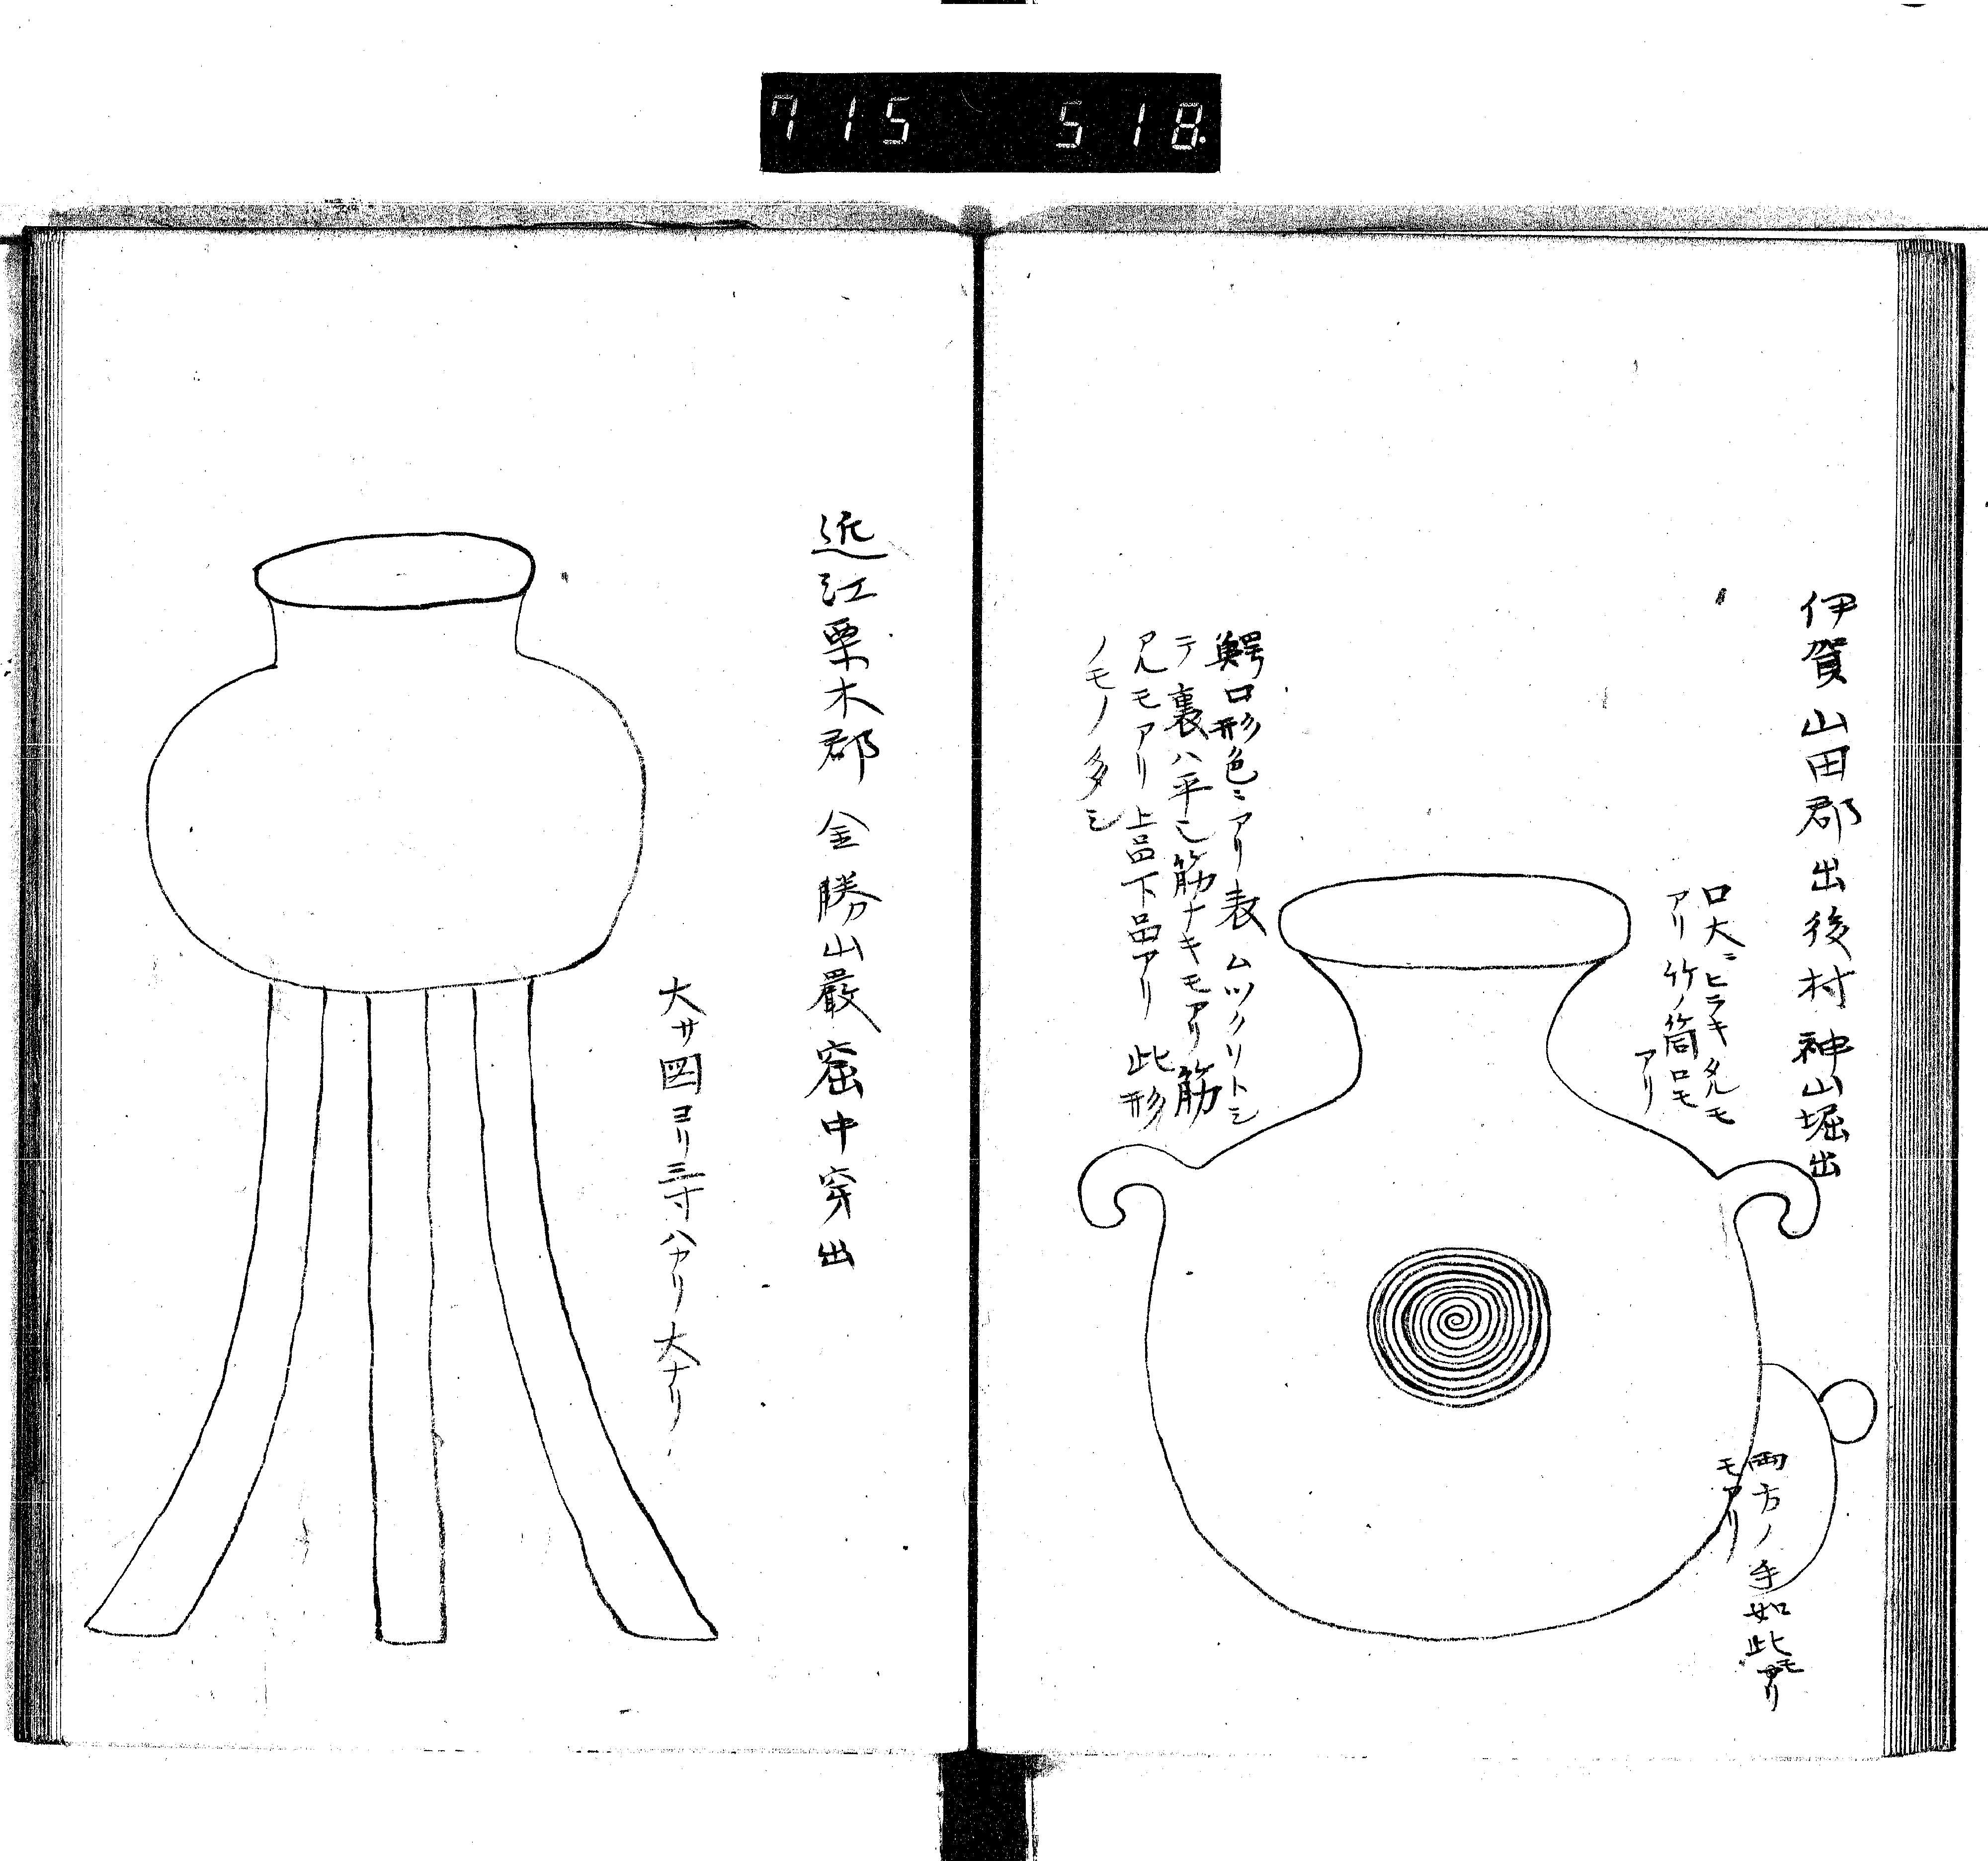 715 518
伊賀山田郡出後村神山堀出
口大ニヒラキタルモ
アリ竹ノ筒口モ
アリ
鰐口形色ニアリ表ムツクリトシ
テ裏ハ平也筋ナキモアリ筋
アルモアリ上品下品アリ此形
ノモノ多シ
両方ノ手如此モアリ
モアリ
近江栗木郡金勝山巌窟中穿出
大サ図ヨリ三寸ハカリ大ナリ